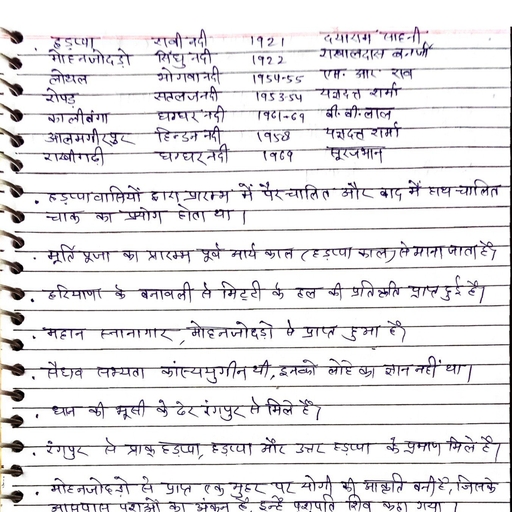 . हड़प्पा रावी नदी 1921 दयाराम साहनी
मोहनजोदड़ो सिंधु नदी 1922 राखालदास बनर्जी
लोथल भोगवा नदी 1954-55 एस. आर. राव
रोपड़ सतलज नदी 1953-54 यज्ञदत्त शर्मा
कालीबंगा घग्घर नदी 1961-69 बी. बी. लाल
आलमगीरपुर हिन्डन नदी 1958 यज्ञदत्त शर्मा
राखीगढ़ी घग्घर नदी 1969 सूरजभान
. हड़प्पा वासियों द्वारा प्रारम्भ में पैर चालित और बाद में हाथ चालित
चाक का प्रयोग होता था।
. मूर्ति पूजा का प्रारम्भ पूर्व आर्य काल (हड़प्पा काल) से माना जाता है।
. हरियाणा के बनावली से मिट्टी के हल की प्रतिकृति प्राप्त हुई है।
. महान स्नानागार, मोहनजोदड़ो से प्राप्त हुआ है।
. सैंधव सभ्यता कांस्ययुगीन थी, इनको लोहे का ज्ञान नहीं था।
. धान की भूसी के ढेर रंगपुर से मिले हैं।
. रंगपुर से प्राक् हड़प्पा, हड़प्पा और उत्तर हड़प्पा के प्रमाण मिले हैं।
. मोहनजोदड़ो से प्राप्त एक मुहर पर योगी की आकृति बनी है, जिसके
आसपास पशुओं का अंकन है, इन्हें पशुपति शिव कहा गया।